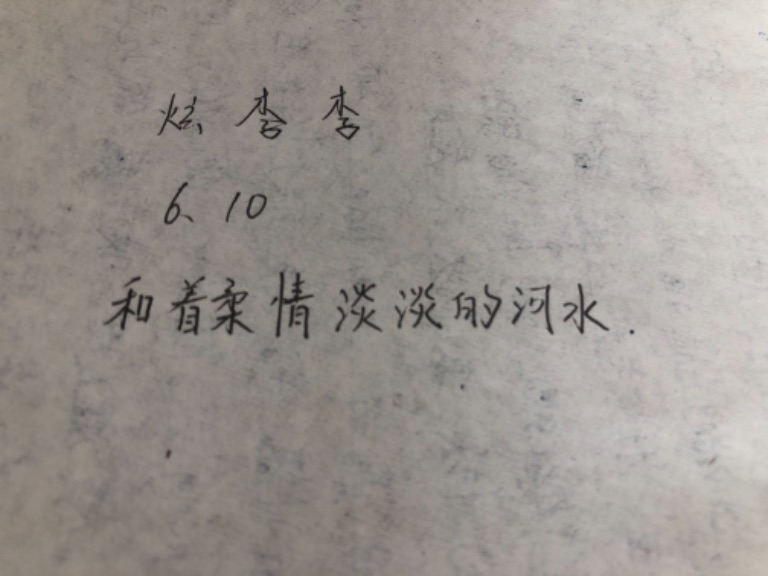 炫李李
6、10
和着柔情淡淡的河水.